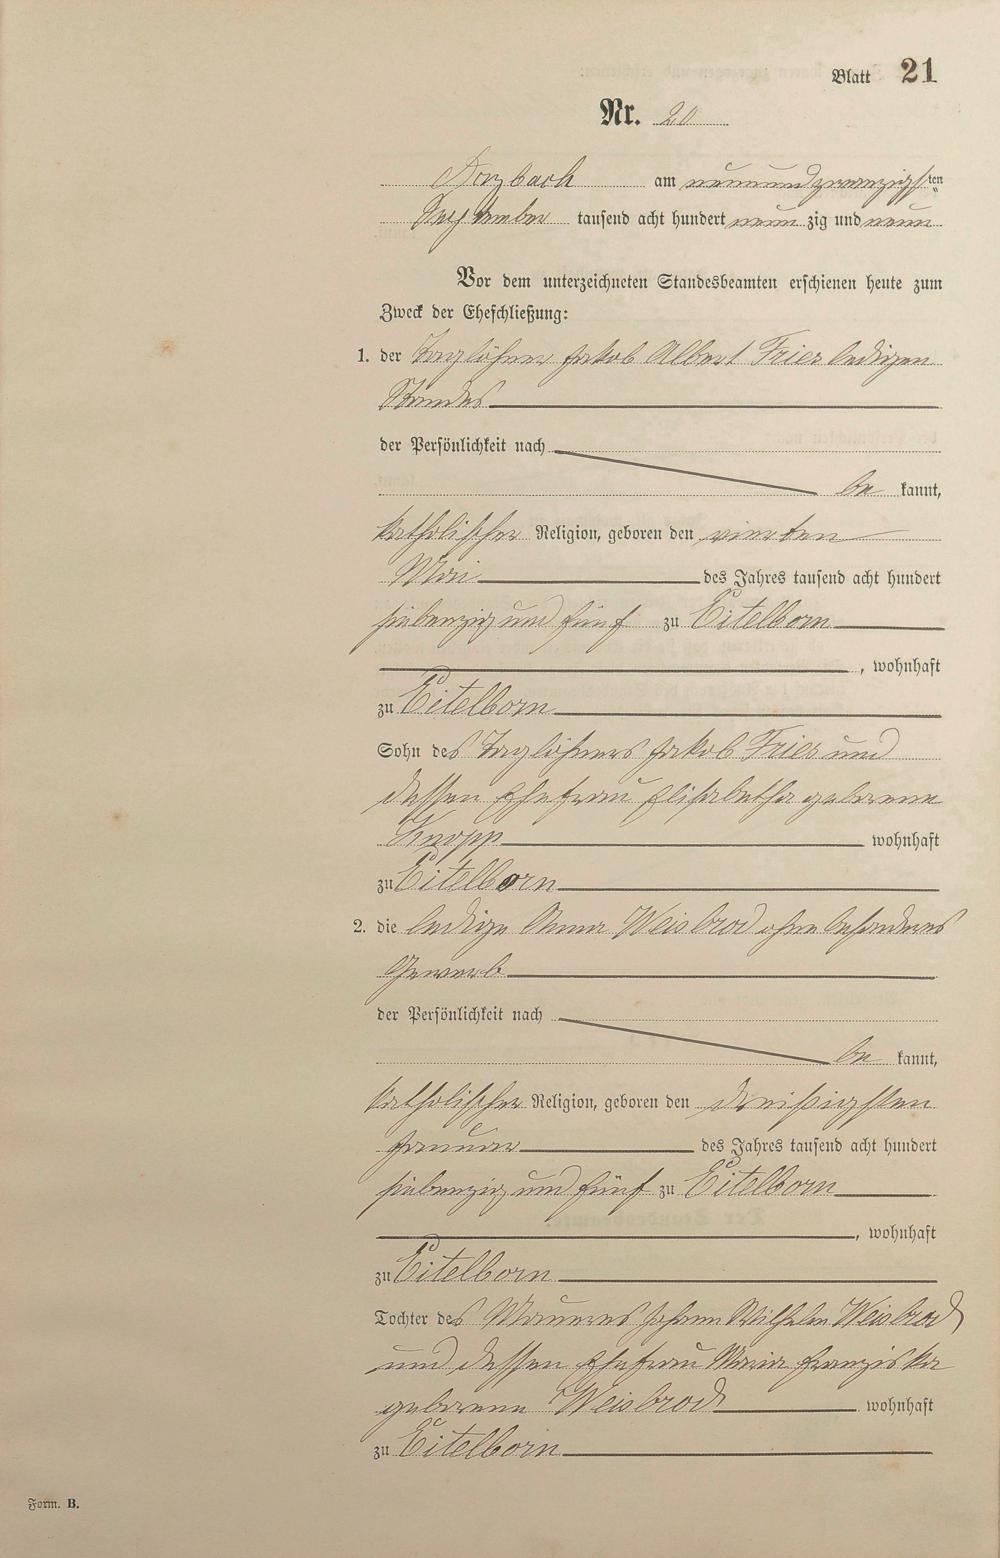 Blatt 21
Nr. 20
Arzbach am neunundzwanzigsten
September tausend acht hundert neunzig und neun
Vor dem unterzeichneten Standesbeamten erschienen heute zum
Zweck der Eheschließung:
1. der Taglöhner Jakob Albert Fries ledigen
Standes
der Persönlichkeit nach
be kannt,
katholischer Religion, geboren den vierten
Mai des Jahres tausend acht hundert
siebenzig und fünf zu Eitelborn
, wohnhaft
zu Eitelborn
Sohn des Taglöhners Jakob Fries und
dessen Ehefrau Elisabetha geborene
Knopp wohnhaft
zu Eitelborn
2. die ledige Anna Weisbrod ohne besonderes
Gewerb
der Persönlichkeit nach
be kannt,
katholischer Religion, geboren den dreißigsten
Januar des Jahres tausend acht hundert
siebenzig und fünf zu Eitelborn
, wohnhaft
zu Eitelborn
Tochter des Maurers Johann Wilhelm Weisbrod
und dessen Ehefrau Maria Franziska
geborene Weisbrod wohnhaft
zu Eitelborn
Form. B.